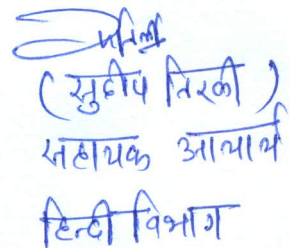 (सुदीप तिरकी)
सहायक आचार्य
हिन्दी विभाग